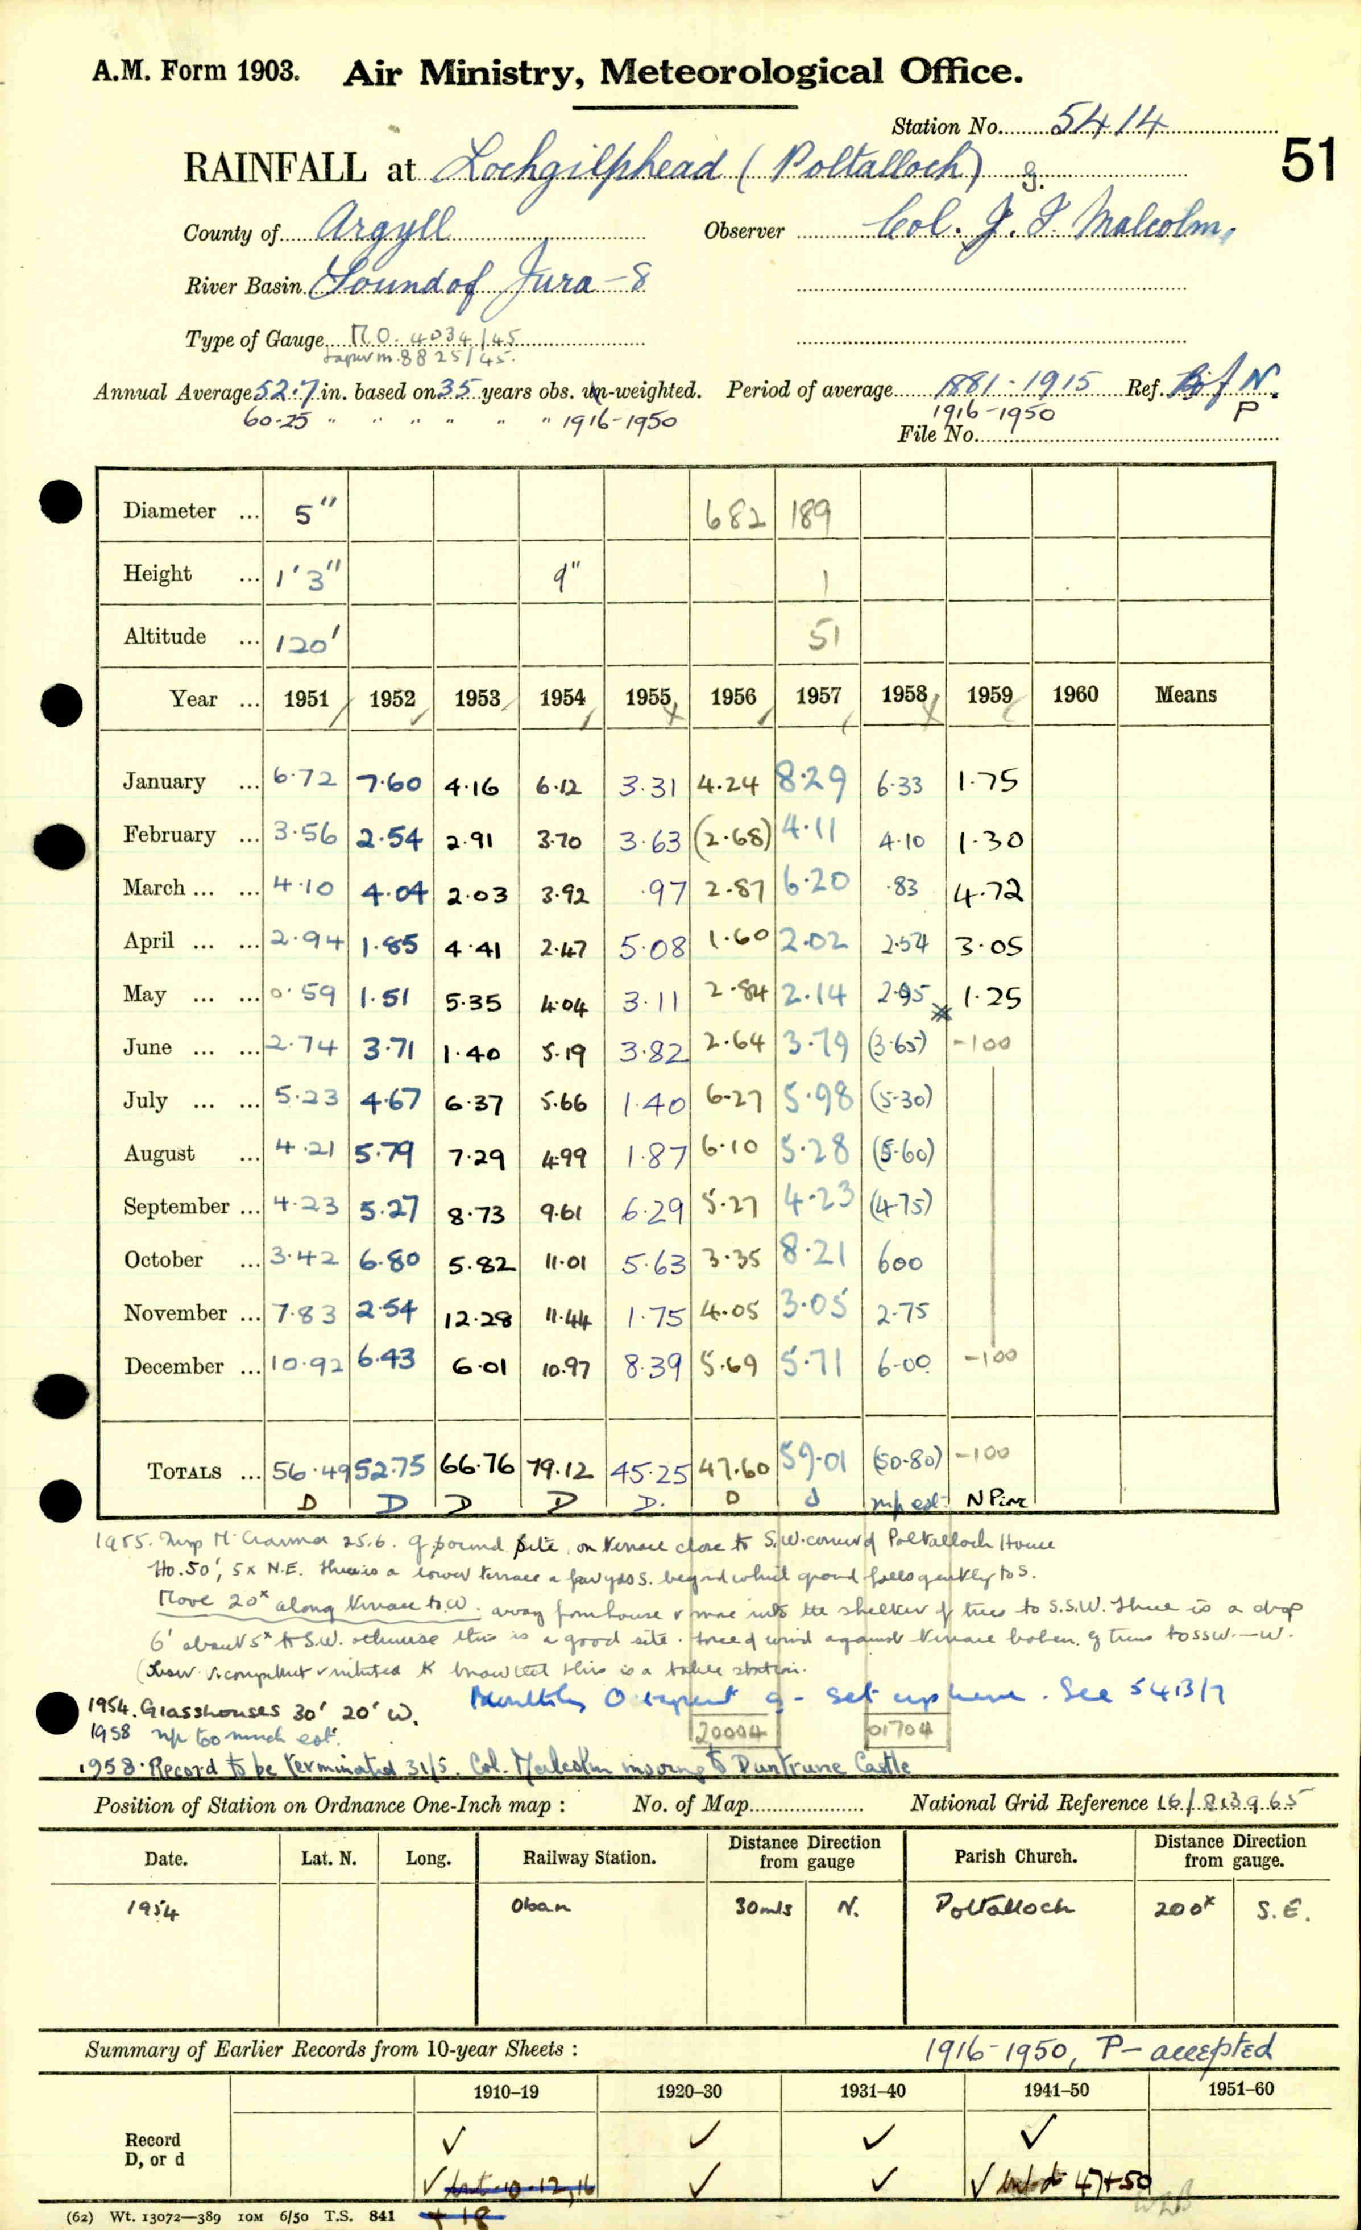 A.M. Form 1903. Air Ministry, Meteorological Office.
Station No. 5414
51
RAINFALL at Lochgilphead (Poltalloch) g.
County of Argyll Observer Col. J. I. Malcolm,
River Basin Sound of Jura - 8
Type of Gauge M.O. 4034/45
8825/45.
Annual Average 52.7 in. based on 35 years obs. un-weighted. Period of average 1881-1915 Ref. B of N.
60.25 " " " " " " 1916-1950 1916-1950 P
File No.
Diameter ... 5" 682 189
Height ... 1' 3" 9" 1
Altitude ... 120' 51
Year ... 1951 1952 1953 1954 1955 1956 1957 1958 1959 1960 Means
January ... 6.72 7.60 4.16 6.12 3.31 4.24 8.29 6.33 1.75
February ... 3.56 2.54 2.91 3.70 3.63 (2.68) 4.11 4.10 1.30
March ... ... 4.10 4.04 2.03 3.92 .97 2.87 6.20 .83 4.72
April ... ... 2.94 1.85 4.41 2.47 5.08 1.60 2.02 2.54 3.05
May ... ... 0.59 1.51 5.35 4.04 3.11 2.84 2.14 2.95 1.25
June ... ... 2.74 3.71 1.40 5.19 3.82 2.64 3.79 (3.65) -100
July ... ... 5.23 4.67 6.37 5.66 1.40 6.27 5.98 (5.30)
August ... 4.21 5.79 7.29 4.99 1.87 6.10 5.28 (5.60)
September ... 4.23 5.27 8.73 9.61 6.29 5.27 4.23 (4.75)
October ... 3.42 6.80 5.82 11.01 5.63 3.35 8.21 600
November ... 7.83 2.54 12.28 11.44 1.75 4.05 3.05 2.75
December ... 10.92 6.43 6.01 10.97 8.39 5.69 5.71 6.00 -100
TOTALS ... 56.49 52.75 66.76 79.12 45.25 47.60 59.01 (50.80) -100
D D D D D. D d m/p est. N Pinc
1955. Insp 25.6. g pound site, on terrace close to S.W. corner of Poltalloch House
Ho. 50', 5x N.E. There is a lower terrace a few yds S. beyond which ground falls gently to S.
Move 20x along terrace to W. away from house & more into the shelter of trees to S.S.W. There is a drop
6' about 5x to S.W. otherwise this is a good site. force of wind against terrace broken by trees to SSW.-W.
to know that this is a table station.
1954. Glasshouses 30' 20' W. Monthly Octapent g - set up here. See 5413/7
1958 m/p too much est. 20004 01704
1958. Record to be terminated 31/5. Col. Malcolm moving to Duntrune Castle
Position of Station on Ordnance One-Inch map: No. of Map National Grid Reference 16/813965
Date. Lat. N. Long. Railway Station. Distance from Direction gauge Parish Church. Distance from Direction gauge.
1954 Oban 30mls N. Poltalloch 200x S.E.
Summary of Earlier Records from 10-year Sheets: 1916-1950, P- accepted
1910-19 1920-30 1931-40 1941-50 1951-60
Record ✓ ✓ ✓ ✓
D, or d ✓ but 10-12, 16 ✓ ✓ ✓ 47+50
+ 18
(62) Wt. 13072-389 10M 6/50 T.S. 841